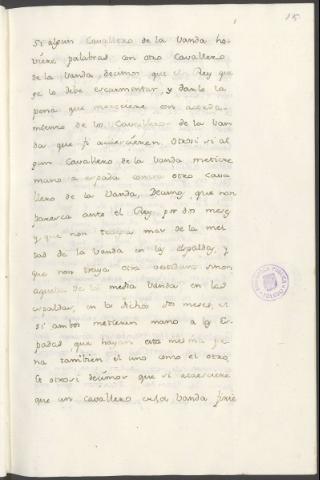 15
Si algun Cavallero de la Vanda ho-
viere palabras con otro Cavallero
de la Vanda, decimos que el Rey que
ge lo debe escarmentar, y darle la
pena que mereciere con acorda-
miento de los Cavalleros de la Van-
da que se acaescieren. Otrosi si al
gun Cavallero de la Vanda metiere
mano a espada contra otro Cava
llero de la Vanda, Decimos, que non
paresca ante el Rey por dos meses
y que non traya mas de la mei
tad de la Vanda en las espaldas, y
que non traya otra sinon
aquella de la media Vanda en las
espaldas, en los dichos dos meses, et
si ambos metieren mano a las Es
padas que hayan esta misma pe
na tambien el uno como el otro.
Et otrosi decimos que si acaesciere
que un cavallero de la Vanda firie